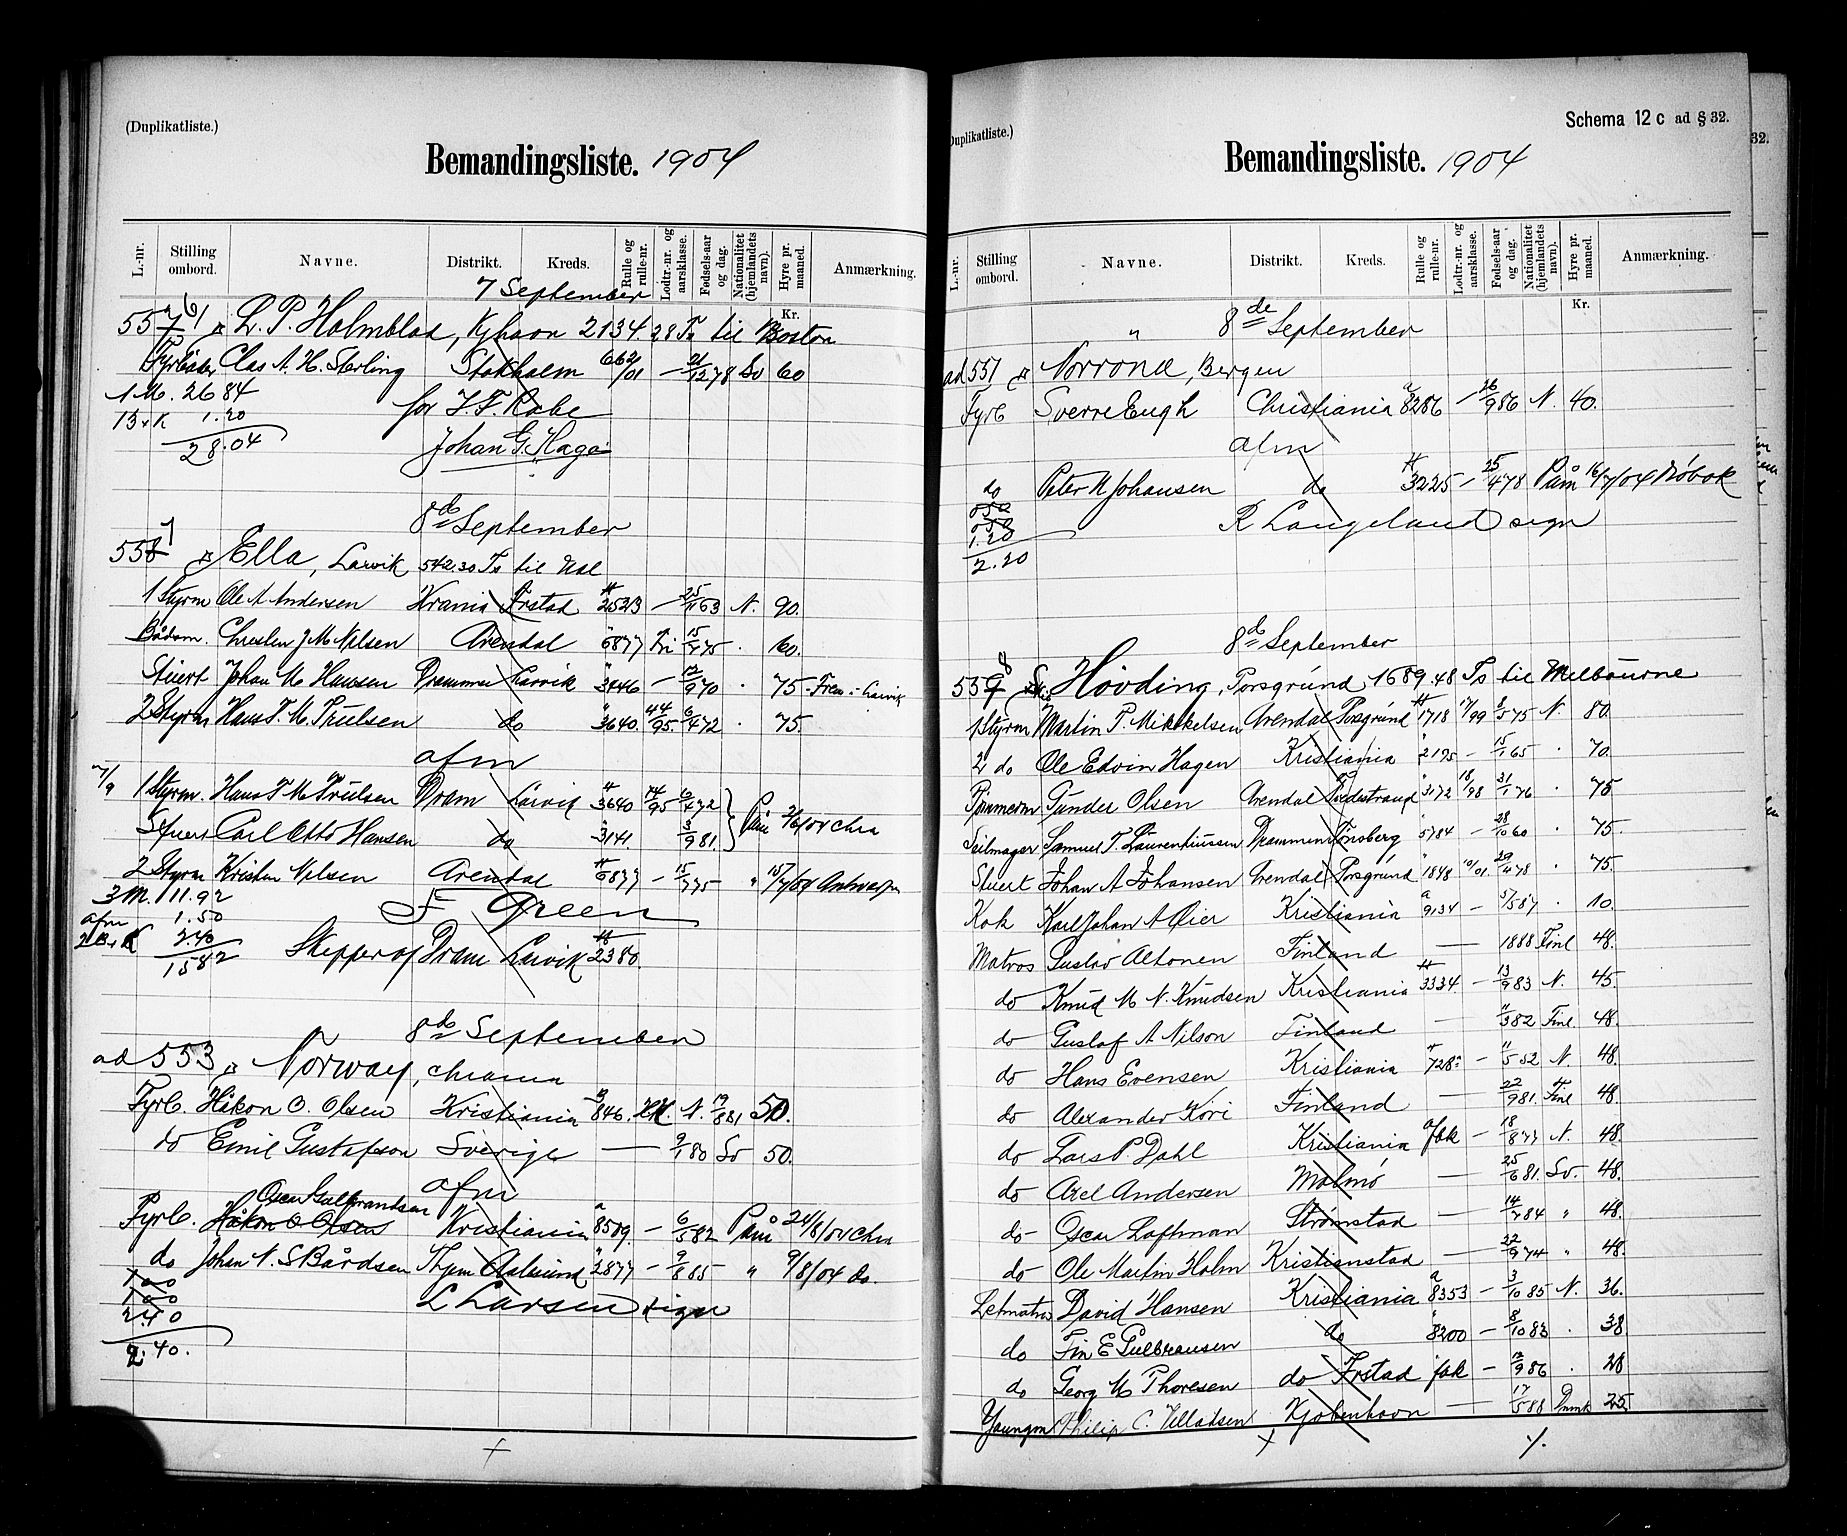 (Duplikatliste.)
Bemandingsliste. 1904
L.-nr. Stilling ombord. Navne. Distrikt. Kreds. Rulle og rulle-nr. Lodtr.-nr. og aarsklasse. Fødsels-aar og dag. Nationalitet (hjemlandets navn). Hyre pr. maaned. Anmærkning.
7 September
Kr.
L. P. Holmblad, Kjhavn 2134.28 Ts til Boston
Fyrbøder Clas A. H. Sterling Stokholm 662/01 — 21/12 78 Sv 60
1 M. 26 84
1.20
28.04
Johan G. Hage
8de September
558 Ella, Larvik 542.30 Ts til Hal
1 Styrm Ole A Andersen Krania Frstad 2523 — 25/1 63 N. 90.
Bådsm. Chresten J M Nilsen Arendal 6877 Fri 15/4 75 60.
Stuert Johan M Hansen Drammen Larvik 3446 — 12/9 70 75 Frem i Larvik
2 Styrm Hans T. M. Trulsen do 3640. 44/95. 6/4 72 75.
afm
7/9 1 Styrm. Hans T M Trulsen Dram Larvik 3640 44/95 6/4 72
Stuert Carl Otto Hansen do 3141. 3/9 81. Påm 2/6/04 Chra
2 Styrm Kristen Nilsen Arendal 6877 — 15/4 75 " 15/7/04 Antwerpen
3 M. 11.92
F Green
afm 1.50
2.40
15 82
Skipper af Dram Larvik 2380.
8de September
ad 553 Norway, Chrania
Fyrb. Håkon O. Olsen Kristiania 846. N. 19/8 81 50.
do Emil Gustafson Sverige — 9/1 80 Sv 50.
afm
Oscar Gulbrandsen
Fyrb. Håkon O Olsen Kristiania 8509. — 6/5 82 Påm 24/8/04 Chra
do Johan N. S Bårdsen Thjem Aalesund 2877 — 9/8 85 " 9/8/04 do.
1 00
1 00
L Larsen sign
2.40
2.40.
Duplikatliste.)
Schema 12 c ad § 32.
Bemandingsliste. 1904
L.-nr. Stilling ombord. Navne. Distrikt. Kreds. Rulle og rulle-nr. Lodtr.-nr. og aarsklasse. Fødsels-aar og dag. Nationalitet (hjemlandets navn). Hyre pr. maaned. Anmærkning.
Kr.
" 8de September
ad 551 Norrona, Bergen
Fyrb Sverre Eugh Christiania 8286 — 26/9 86 N. 40.
afm
do Peter N Johansen do 3225 — 25/4 78 Påm 16/7/04
0 50
0 50
R Langeland sign
1.20
2.20
8de September
559 Hövding, Porsgrund 1689.48 Ts til Melbourne
1 Styrm Martin P. Mikkelsen Arendal Porsgrund 1718 17/99 2/5 75 N. 80.
2 do Ole Edvin Hagen Kristiania 2195 — 15/1 65 70.
Tømmerm Gunder Olsen Arendal Tvedestrand 3172 18/98 31/1 76 75
Seilmager Samuel T. Laurentiussen Drammen Tønsberg 5784 — 28/10 60 75.
Stuert Johan A Johansen Arendal Porsgrund 1848 10/01 29/4 78 75.
Kok Karl Johan A Øier Kristiania 9134 — 5/5 87 10.
Matros Gustav Altonen Finland — 1888 Finl 48.
do Knud M N. Knudsen Kristiania 3334 — 13/9 83 N. 45.
do Gustaf A Nilson Finland — 11/3 82 Finl 48.
do Hans Evensen Kristiania — 11/5 52 N. 48.
do Alexander Kori Finland — 22/9 81. Finl 48.
do Lars P. Dahl Kristiania fak — 18/8 77 N. 48.
do Axel Andersen Malmö — 25/6 81. Sv. 48.
do Oscar Loftman Strømstad — 14/7 84 " 48.
do Ole Martin Holm Kristianstad — 22/9 74 " 48.
Letmatros David Hansen Kristiania 8353 — 3/10 85 N. 36.
do Fin E Gulbransen do 8200 — 8/10 83 38
do Georg M Thoresen do Frstad fak — 12/9 86 28
Youngm Philip C. Villadsen Kjøbenhavn — 17/5 88 Dnmk 25.
32.